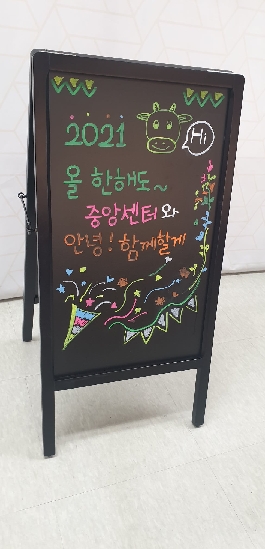 2021
Hi
올 한해도~
중앙센터와
안녕! 함께할게